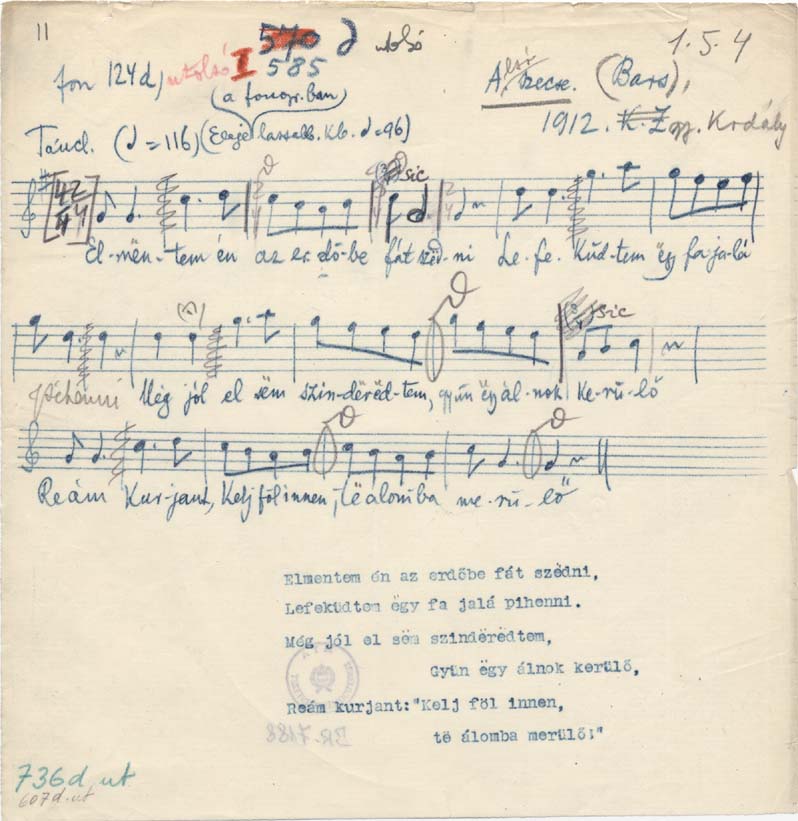 11
570 d utolsó
1.5.4
fon 124d) utolsó I 585
Alsó Szecse. (Bars),
(a fonogr. ban
Táncl. (♩=116) (Eleje lassabb. kb. ♩=96)
1912. K. Z
sic
El-mën-tem én az er-dő-be fát szëd-ni Le-fe-küd-tem ëgy fa ja-lá
sic
pihenni Még jól el sëm szin-dërëd-tem, gyün ëgy ál-nok ke-rü-lő
Reám kur-jant, Kelj föl innen, të álomba me-rü-lő"
Elmentem én az erdőbe fát szëdni,
Lefeküdtem ëgy fa jalá pihenni.
Még jól el sëm szindërëdtem,
Gyün ëgy álnok kerülő,
Reám kurjant:"Kelj föl innen,
të álomba merülő!"
BR-7188
736d ut
607d. ut